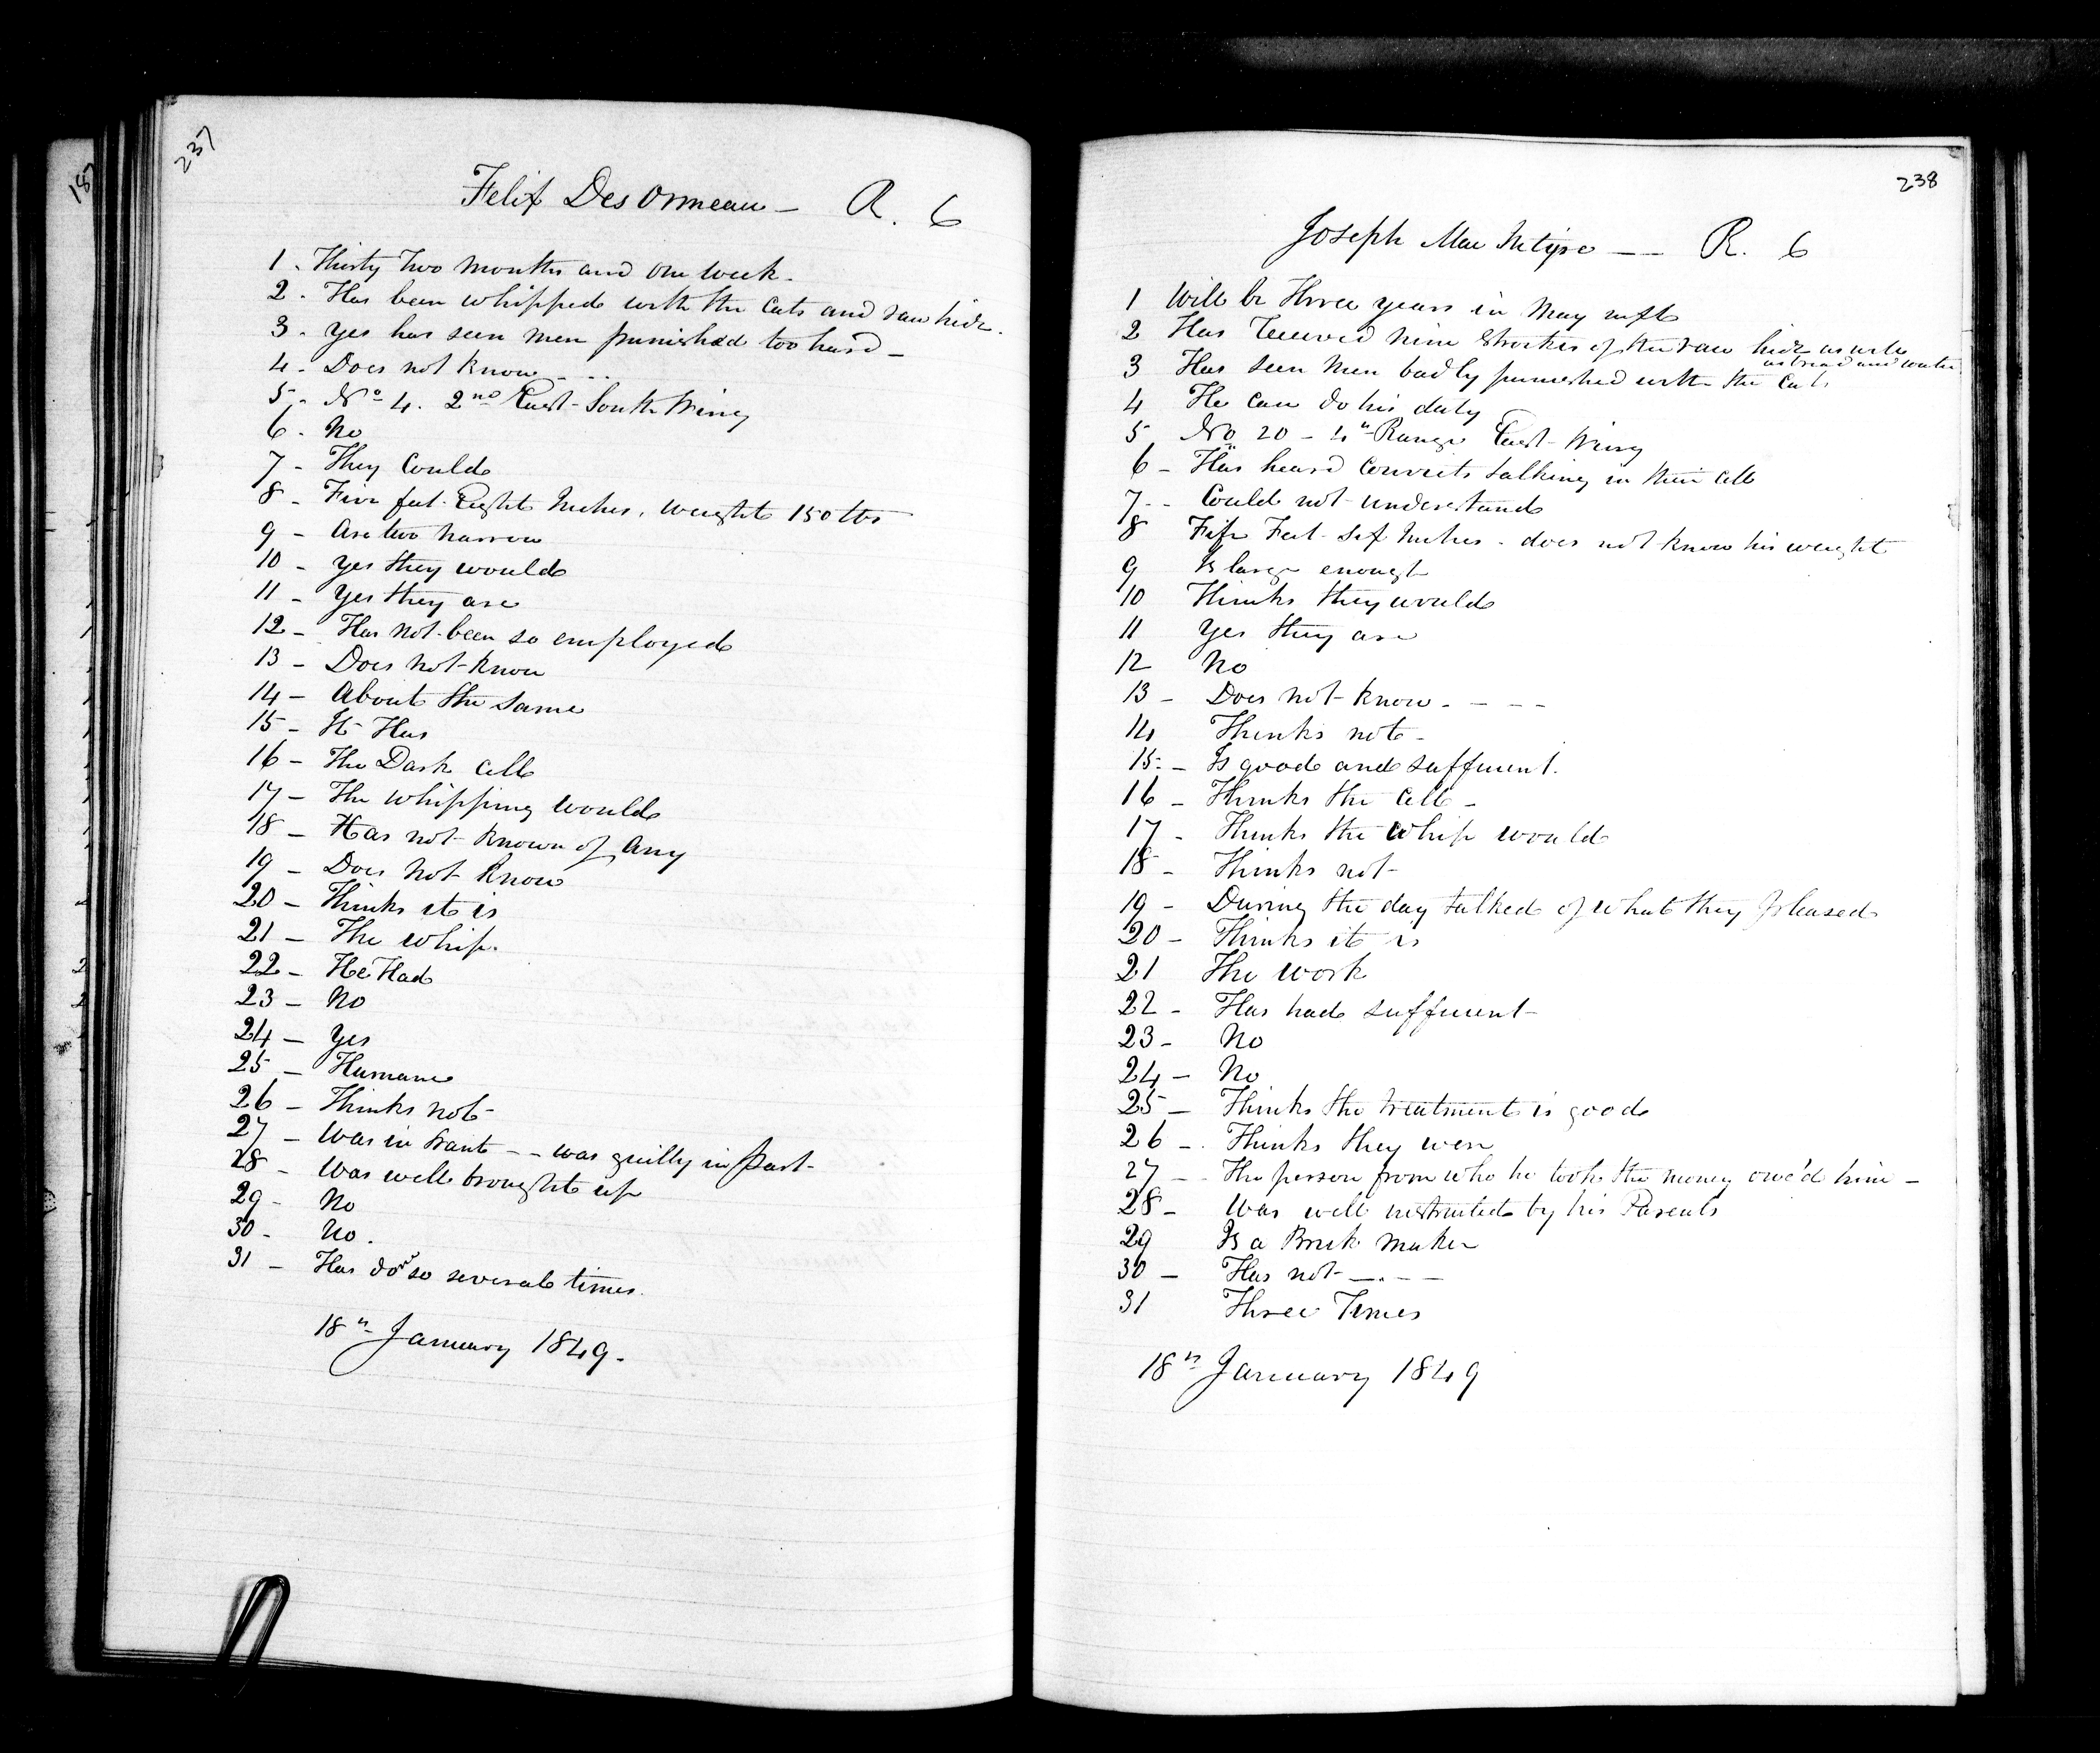 187
237
Felix DesOrmeau — R. 6
1. Thirty Two Months and one week.
2. Has been whipped with the Cats and raw hide.
3. Yes has seen men punished too hard —
4. Does not know - - -
5. No 4. 2nd East South Wing
6. No
7 - They Could
8 - Five feet Eight Inches, weight 150 lbs
9 - Are two narrow
10 - Yes they would
11 - Yes they are
12 - Has not been so employed
13 - Does not know
14 - About the same
15 - It Has
16 - The Dark Cell
17 - The whipping would
18 - Has not known of any
19 - Does Not Know
20 - Thinks it is
21 - The Whip.
22 - He Had
23 - No
24 - Yes
25 - Humane
26 - Thinks not -
27 - Was in want - - was guilty in part -
28 - Was well brought up
29 - No
30 - No.
31 - Has so several times.
18th January 1849.
238
Joseph Mac Intyre — — R. 6
1 Will be Three years in May
2 Has Received nine Strokes of the raw hide as well
as bread and water
3 Has seen men badly punished with the Cats
4 He can do his duty
5 No 20 - 4th Range East Wing
6 - Has heard Convicts talking in their cell
7 - - Could not understand
8 Feet Six Inches - does not know his weight
9 Is large enough
10 Thinks they would
11 Yes they are
12 No
13 - Does not know - - - -
14 Thinks not -
15 - Is good and sufficient.
16 - Thinks the Cell -
17 - Thinks the Whip would
18 - Thinks not -
19 - During the day talked of what they pleased
20 - Thinks it is
21 The work
22 - Has had sufficient -
23 - No
24 - No
25 - Thinks the treatment is good
26 - Thinks they were
27 - - The person from who he took the money owe'd him -
28 - Was well instructed by his Parents
29 Is a Brick Maker
30 - Has not - - . - -
31 Three Times
18th January 1849